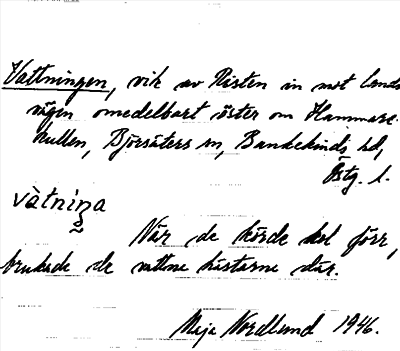 Vattningen, vik av Risten in mot lands
vägen omedelbart öster om Hammars-
kullen, Björsäters sn, Bankekinds hd,
Östg. l.
vàtniŋa
När de körde kol förr,
brukade de vattna hästarna där.
Maja Nordlund 1946.